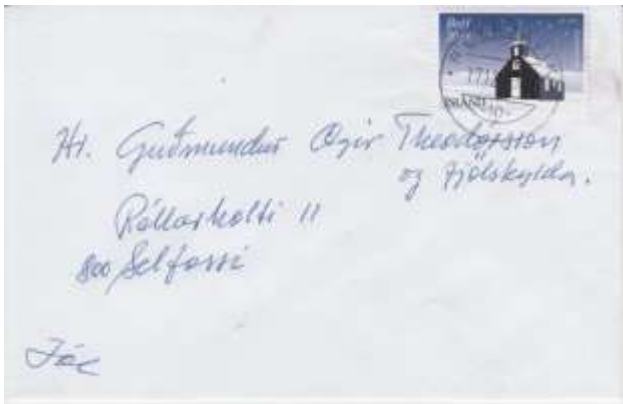 ÍSLAND
Hr. Guðmundur Ægir Theodórsson
og fjölskylda.
Réttarholti 11
800 Selfossi
Jól